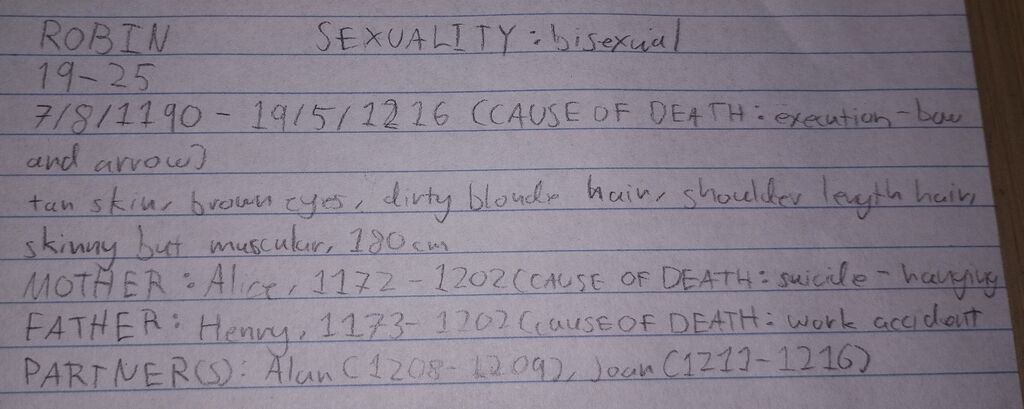 ROBIN SEXUALITY: bisexual
19-25
7/8/1190 - 19/5/1216 (CAUSE OF DEATH: execution - bow
and arrow)
tan skin, brown eyes, dirty blonde hair, shoulder length hair,
skinny but muscular, 180cm
MOTHER: Alice, 1172 - 1202 (CAUSE OF DEATH: suicide - hanging
FATHER: Henry, 1173 - 1202 (CAUSE OF DEATH: work accident
PARTNER(S): Alan (1208-1209), Joan (1211-1216)